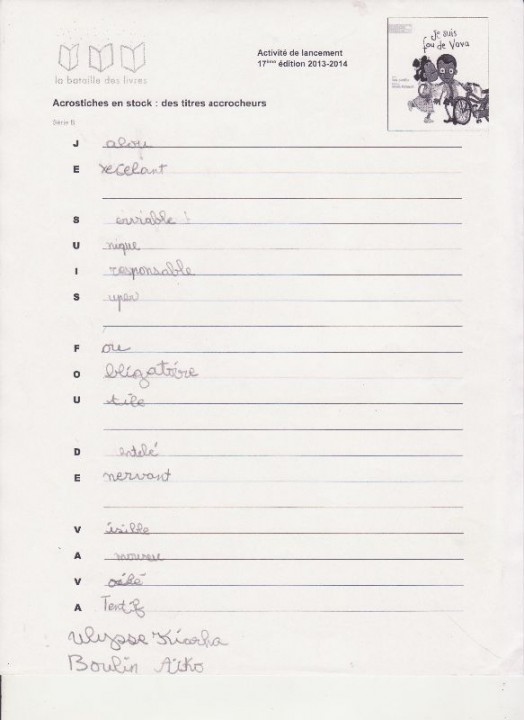 la bataille des livres
Activité de lancement
17ème édition 2013-2014
Je suis
fou de Vava
Acrostiches en stock : des titres accrocheurs
Série B
J alou
E xecelant
S enviable !
U nique
I responsable
S uper
F ou
O bligatoire
U tile
D entelé
E nervant
V isible
A moureu
V
A Tentif
Ulysse Kiarha
Boulin Aïko